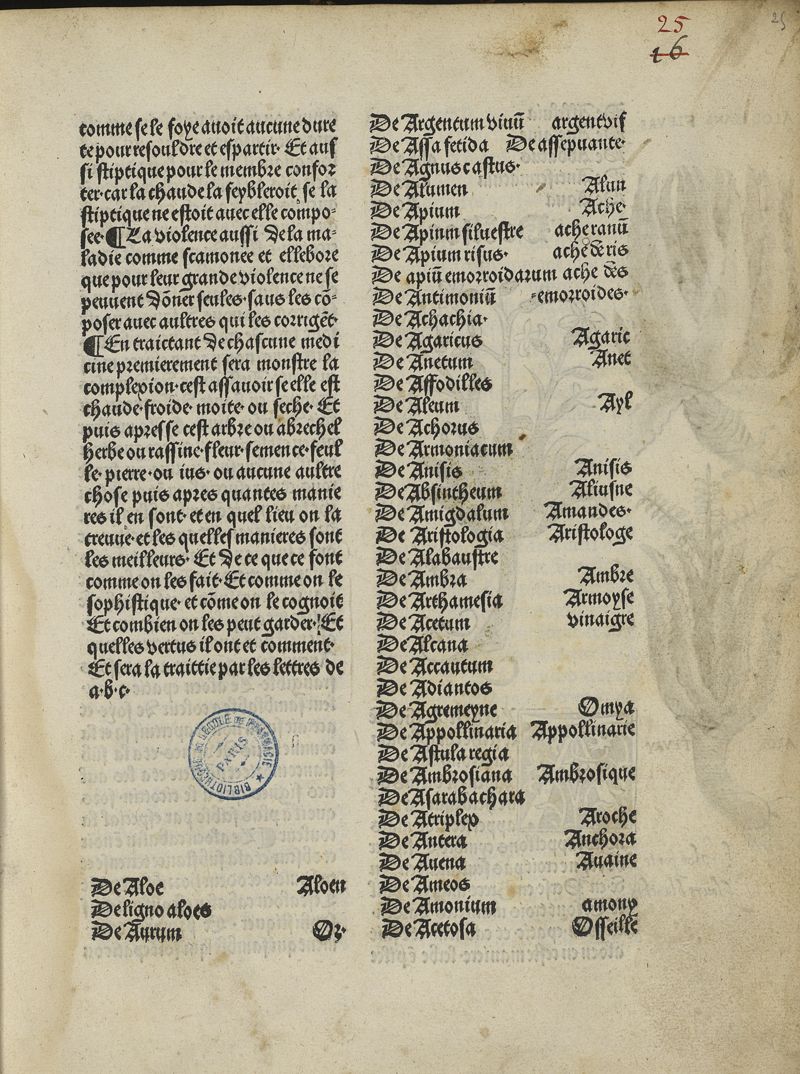 25
25
16
comme se le foye auoit aucune dure
te pour resouldre et espartir· Et aus
si stiptique pour le membre confor
ter· car la chaude la feybleroit se la
stiptique ne estoit auec elle compo-
see· ¶ La violence aussi De la ma-
ladie comme scamonee et ellebore
que pour leur grande violence ne se
peuuent dōner seules· sans les cō-
poser auec aultres qui les corrigēt·
¶ En traictant De chascune medi
cine premierement sera monstre la
complexion· cest assauoir se elle est
chaude· froide· moite· ou seche· Et
puis apres se cest arbre ou abrechel
herbe ou rassine· fleur· semence· feul
le· pierre· ou ius· ou aucune aultre
chose puis apres quantes manie
res il en sont· et en quel lieu on la
treuue· et les quelles manieres sont
les meilleurs· Et De ce que ce font
comme on les fait· Et comme on le
sophistique· et cōme on le cognoit
Et combien on les peut garder· Et
quelles vertus il ont et comment·
Et sera la traittie par les lettres de
a·b·c·
BIBLIOTHEQUE DE L'ECOLE DE PHARMACIE PARIS
De Aloe Aloen
De ligno aloes
De Aurum Or·
De Argentum viuū argent vif
De Assa fetida De asse puante·
De Agnus castus·
De Alumen Alun
De Apium Ache·
De Apium siluestre ache ranū
De Apium risus· ache de ris
De apiū emorroidarum ache des
De Antimoniū -emorroides·
De Achachia·
De Agaricus Agaric
De Anetum Anet
De Affodilles
De Aleum Ayl
De Achorus
De Armoniacum
De Anisis Anisis
De Absintheum Aliusne
De Amigdalum Amandes·
De Aristologia Aristologe
De Alabaustre
De Ambra Ambre
De Arthamesia Armoyse
De Acetum vinaigre
De Alcana
De Accautum
De Adiantos
De Agremeyne Omya
De Appollinaria Appollinarie
De Astula regia
De Ambrosiana Ambrosique
De Asarabachara
De Atriplex Aroche
De Antera Anthora
De Auena Auaine
De Ameos
De Amonium amony
De Acetosa Osseille